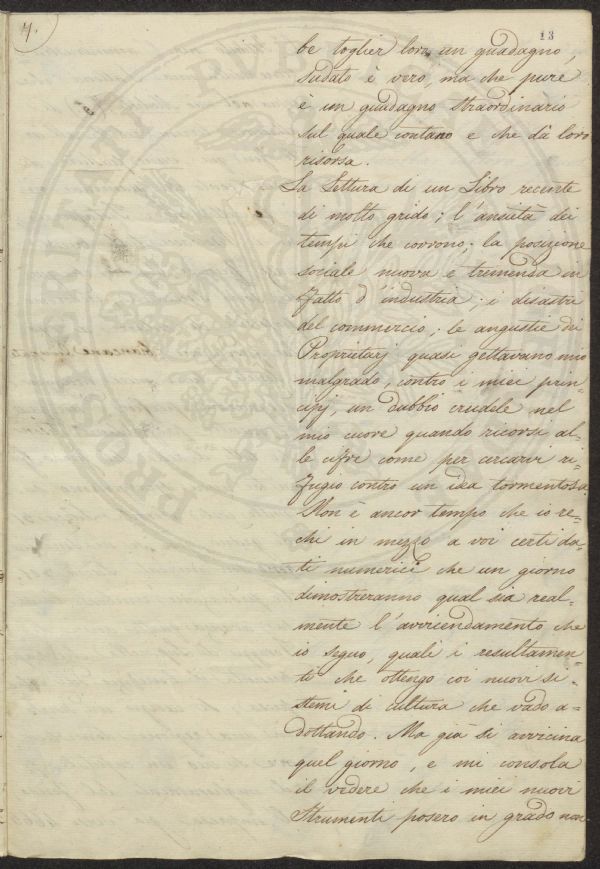 7.
13
be toglier loro un guadagno,
sudato è vero, ma che pure
è un guadagno straordinario
sul quale contano e che dà loro
risorsa.
La Lettura di un Libro recente
di molto grido; l'ansietà dei
tempi che corrono; la posizione
sociale nuova e tremenda in
fatto d'industria; i disastri
del commercio; le angustie di
Proprietarj quasi gettavano mio
malgrado, contro i miei prin-
cipj, un dubbio crudele nel
mio cuore quando ricorsi al-
le cifre come per cercarvi ri-
fugio contro un idea tormentosa.
Non è ancor tempo che io re-
chi in mezzo a voi certi da-
ti numerici che un giorno
dimostreranno qual sia real-
mente l'avvicendamento che
io seguo, quali i resultamen-
ti che ottengo coi nuovi si-
stemi di cultura che vado a-
dottando. Ma già si avvicina
quel giorno, e mi consola
il vedere che i miei nuovi
Strumenti posero in grado non